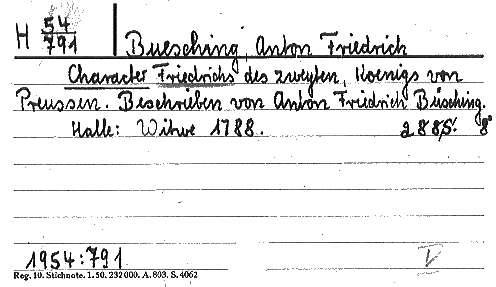 H 54/791 Buesching, Anton Friedrich
Character Friedrichs des zweyten, Koenigs von
Preussen. Beschrieben von Anton Friedrich Büsching.
Halle: Witwe 1788. 288 S. 8°
1954:791 V
Reg. 10. Stichnote. 1. 50. 232000. A. 803. S. 4062